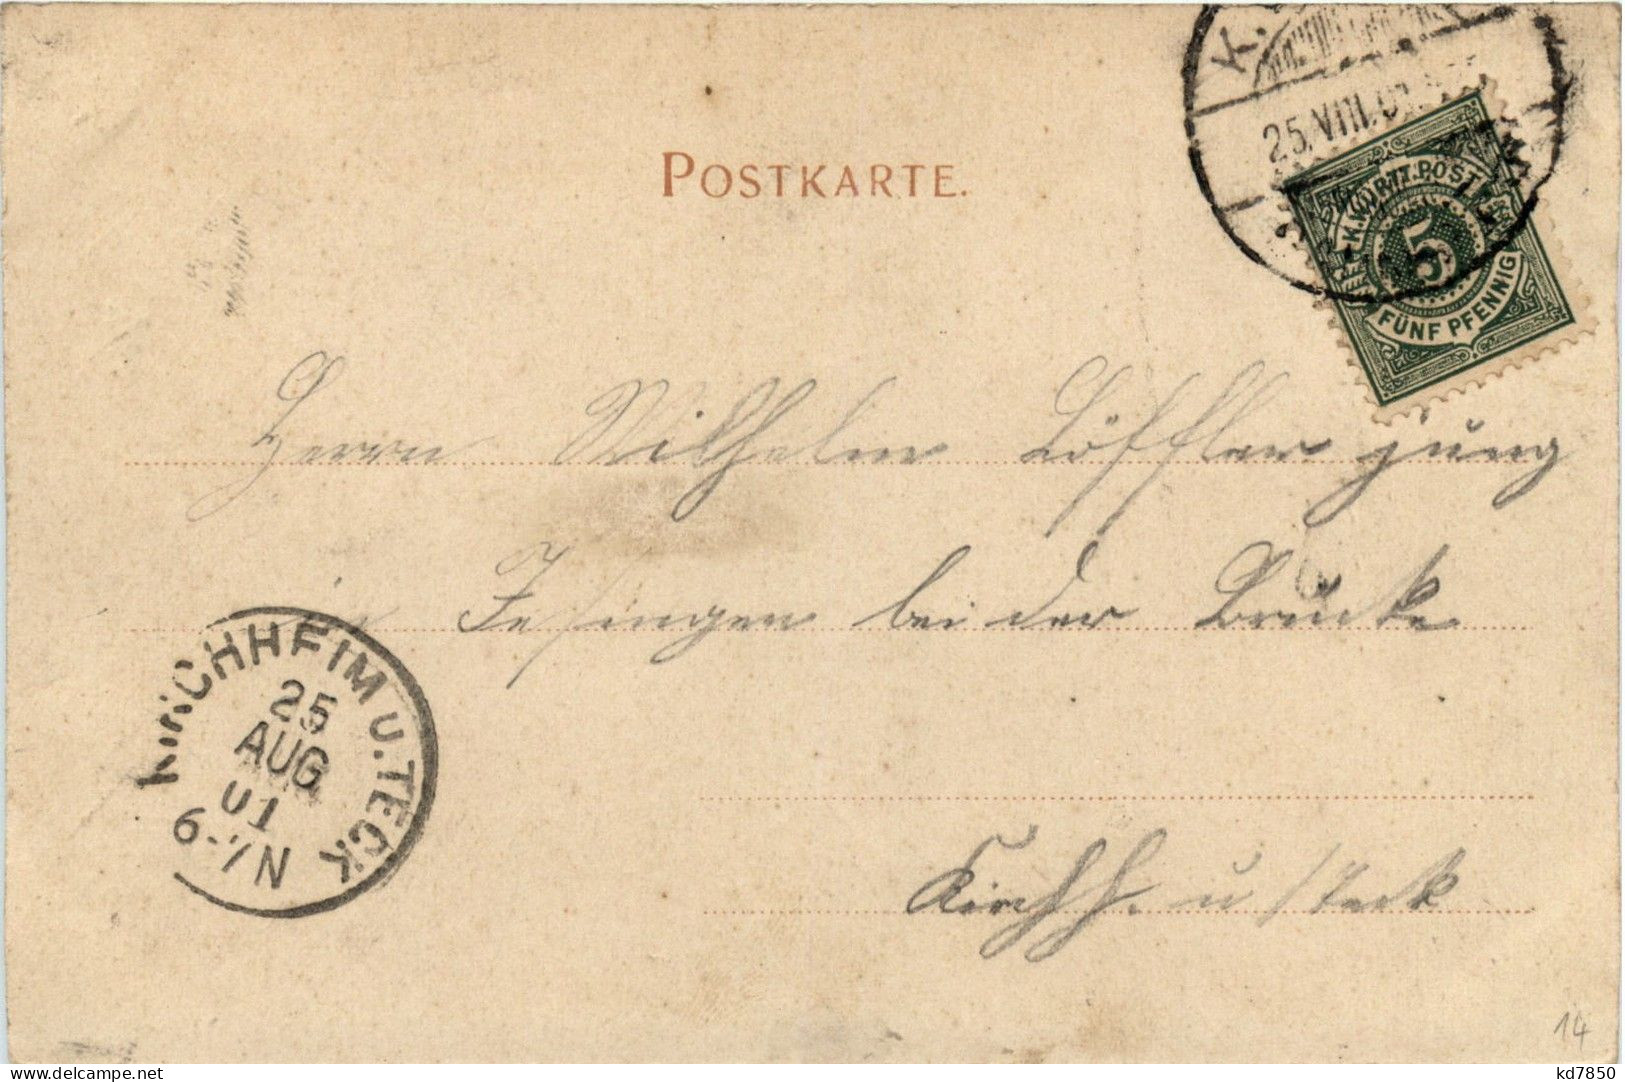 POSTKARTE.
K.
25.VIII.01
K.WÜRTT.POST
5
FÜNF PFENNIG
Herrn Wilhelm Löffler jung
in Jesingen bei der Brücke
KIRCHHEIM U. TECK
25
AUG
01
6-7N
Kirchh. u/Teck
14
delcampe.net
kd7850